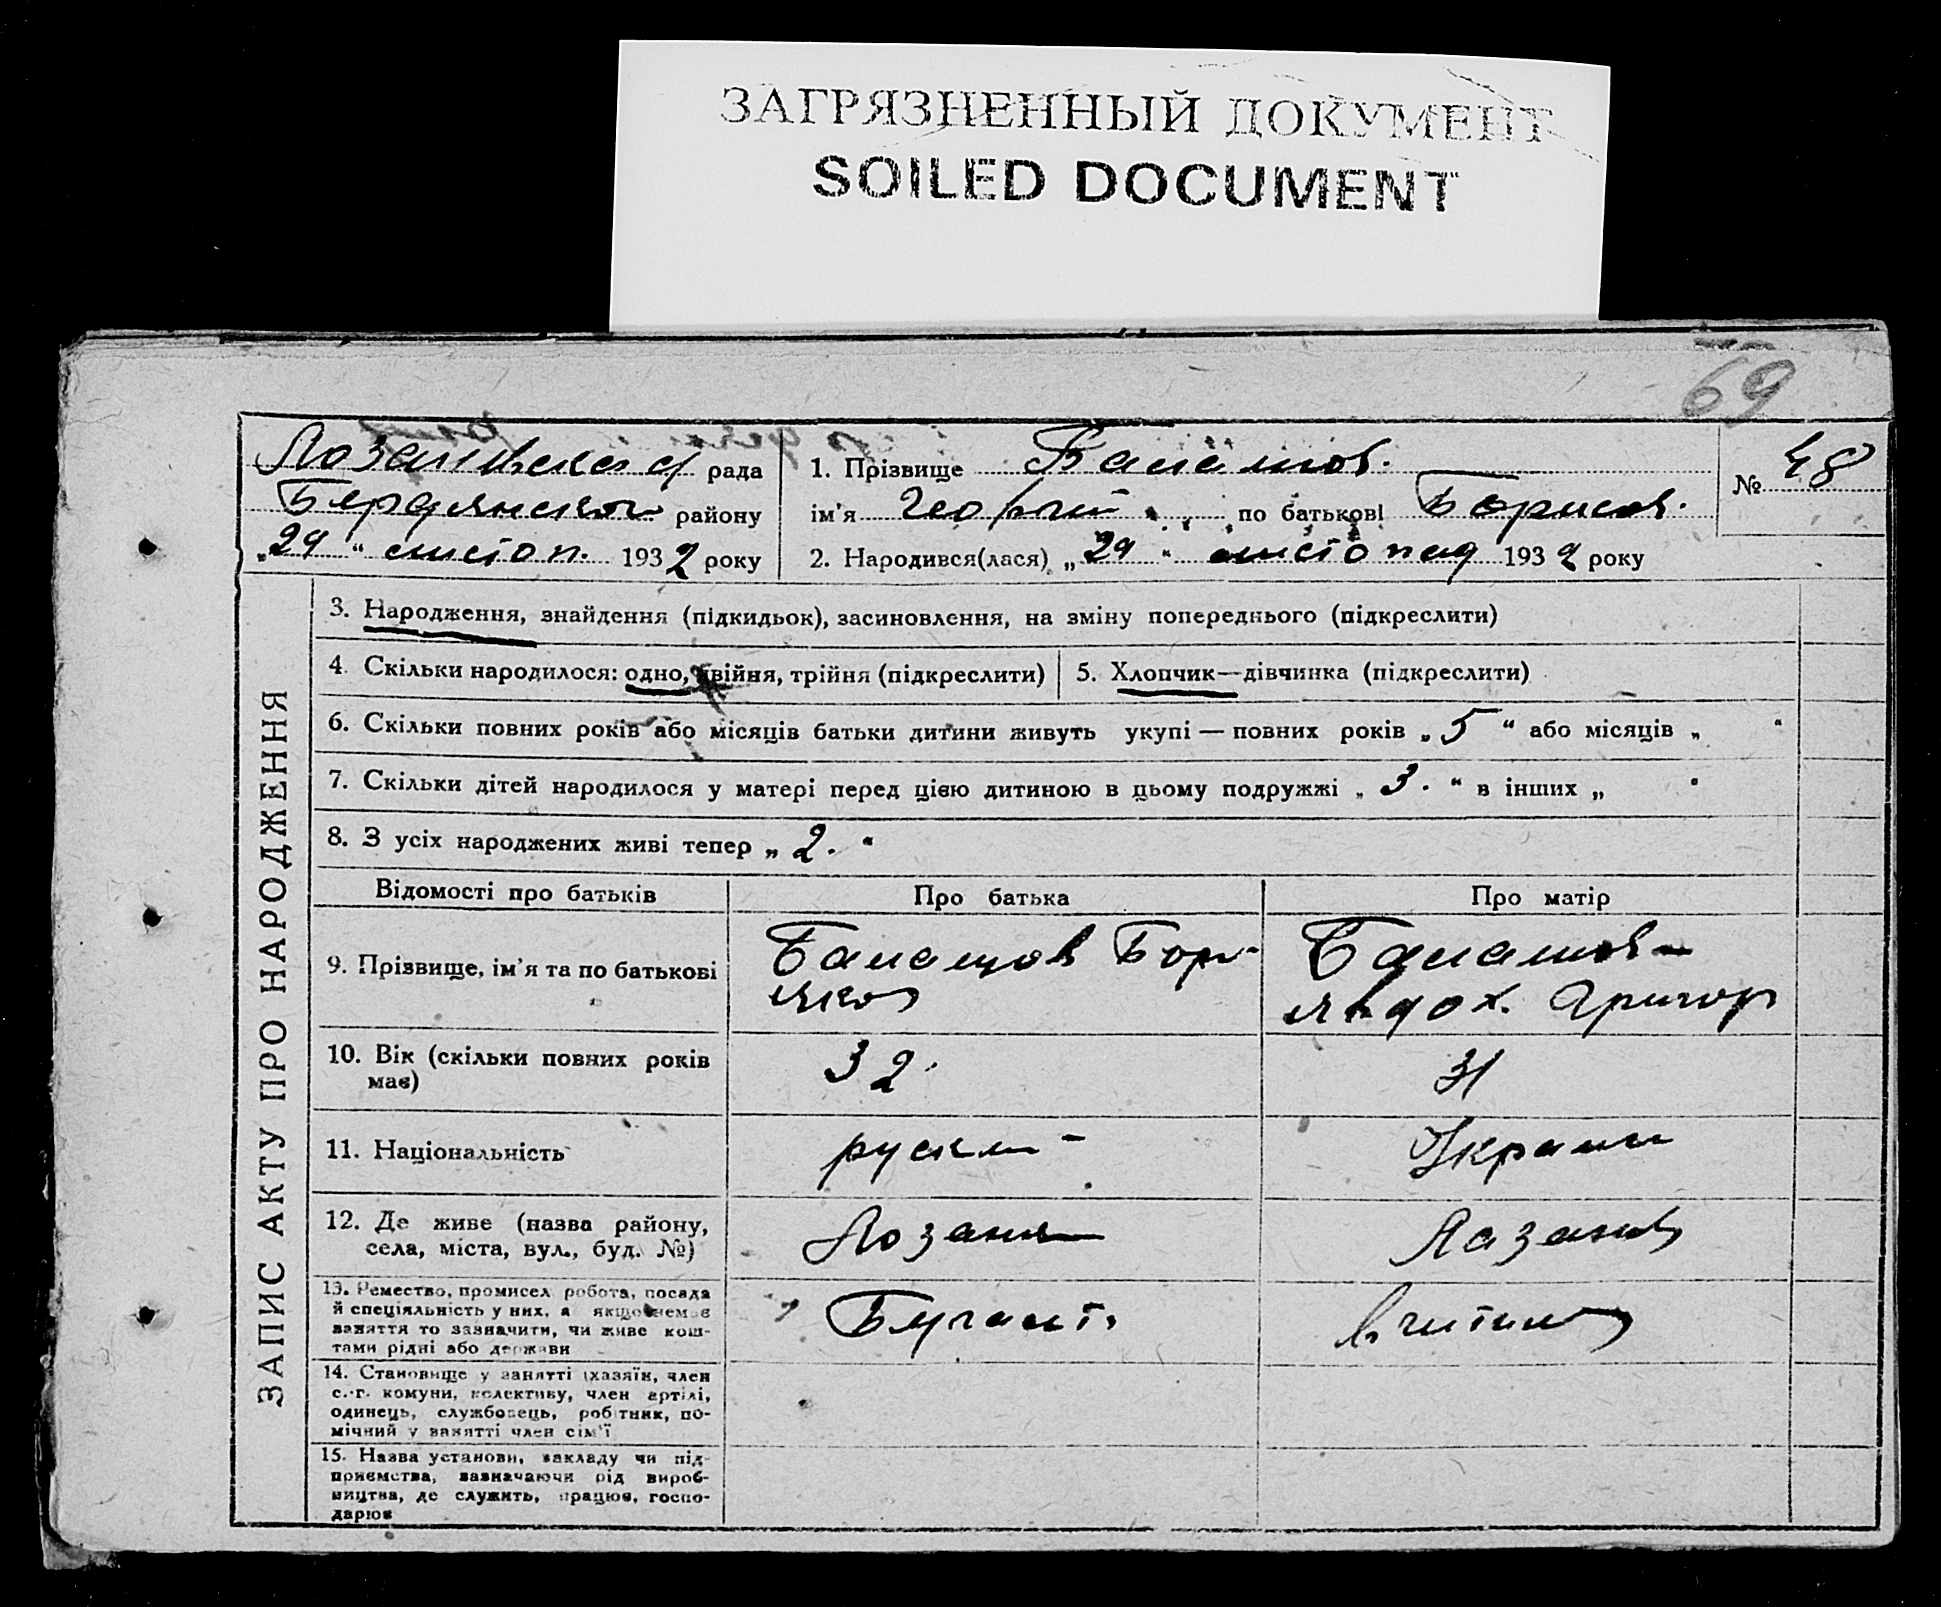 ЗАГРЯЗНЕННЫЙ ДОКУМЕНТ
SOILED DOCUMENT
69
рада
Бердянског району
„29“ листоп. 1932 року
1. Прізвище
ім'я Георгий по батькові Борисов.
2. Народився(лася) „29“ листопад 1932 року
№ 48
ЗАПИС АКТУ ПРО НАРОДЖЕННЯ
3. Народження, знайдення (підкидьок), засиновлення, на зміну попереднього (підкреслити)
4. Скільки народилося: одно, двійня, трійня (підкреслити)
5. Хлопчик—дівчинка (підкреслити)
6. Скільки повних років або місяців батьки дитини живуть укупі — повних років „5“ або місяців „ “
7. Скільки дітей народилося у матері перед цією дитиною в цьому подружжі „3.“ в інших „ “
8. З усіх народжених живі тепер „2.“
Відомості про батьків Про батька Про матір
9. Прізвище, ім'я та по батькові
Григор
10. Вік (скільки повних років має) 32. 31
11. Національність руский Украин
12. Де живе (назва району,
села, міста, вул., буд. №)
13. Ремество, промисел робота, посада
й спеціяльність у них, а якщо немає
заняття то зазначити, чи живе кош-
тами рідні або держави
14. Становище у занятті (хазяїн, член
с.-г. комуни, колективу, член артілі,
одинець, службовець, робітник, по-
мічний у занятті член сім'ї
15. Назва установи, закладу чи під-
приємства, зазначаючи рід вироб-
ництва, де служить, працює, госпо-
дарює